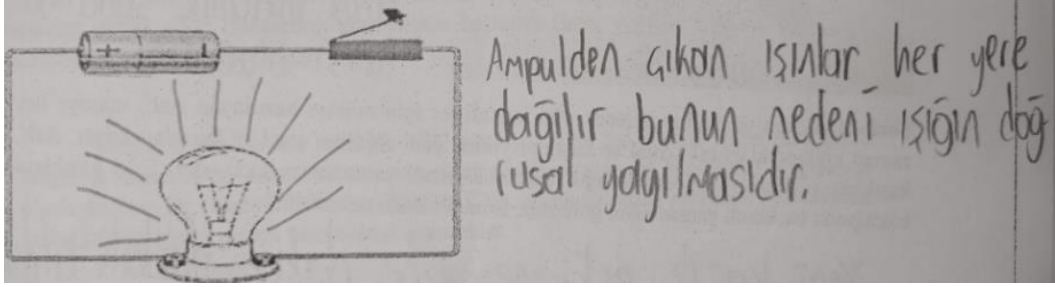 + -
Ampulden çıkan ışınlar her yere
dağılır bunun nedeni ışığın doğ
rusal yayılmasıdır.